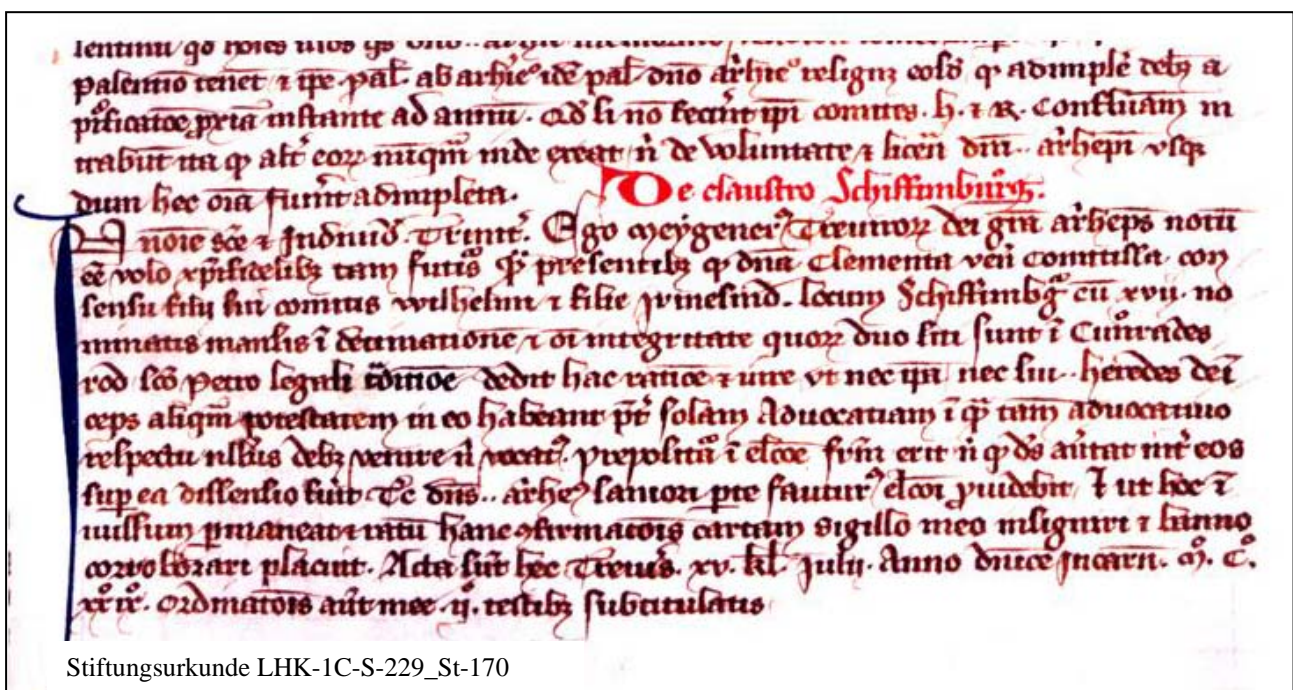 palentino tenet ⁊ ipe pal. ab archiepo idē pal. dno archiepo resignz eosdē q adimplē debz a
pificatōe pxīa instante ad annū. Qd si nō fecīnt ipi comites. h. ⁊ R. Confluām in
trabūt ita q̄ alt̄ eorꝝ nūq̄m inde exeat n̄ de voluntate ⁊ licen dnī.. archepī vsq
dum hec oīa fuīnt adimpleta. De claustro Schiffimburg.
In noīe scē ⁊ Indiuid. Trinit. Ego meygener Treuiroꝝ dei grā archeps notū
eē volo xpifidelibz tam futis q̄ presentibz q dnā Clementa ven comitissa. con
sensu filii sui comitis wilhelmi ⁊ filie irmesind. locum Schiffimbg cū xvii. no
minatis mansis ī decimatione ⁊ oī integritate quorꝝ duo siti sunt ī Cunrades
rod scō Petro legali dedit hac ratiōe ⁊ iure vt nec ipa nec sui.. heredes deī
ceps aliqm potestatem in eo habeant pt solam Aduocatiam ī q̄ tam aduocatiuo
respectu nllius debz venire n̄ vocat. prepositū ī elcōe frm erit n̄ q ds aūtat int eos
sup ea dissensio fuit Tc dns.. arche saniori pte fautur elcōi puidebit. Et ut hoc ī
uissum pmaneat ⁊ ratū hanc ꝯfirmatōis cartam sigillo meo insigniri ⁊ banno
corroborari placuit. Acta sūt hec Treuis. xv. kl. Julii. Anno dnice Incarn. M. C.
xxix. Ordinatōis aūt mee. ii. testibz subtitulatis
Stiftungsurkunde LHK-1C-S-229_St-170